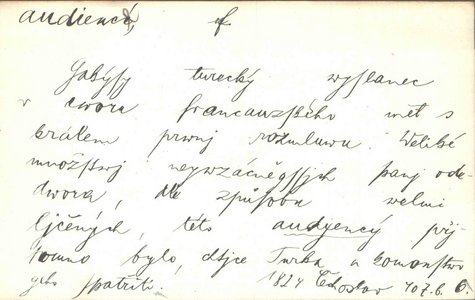 audiencí, f.
Gakýsy turecký wyslanec
v dwora francauzského měl s
králem prwnj rozmluwu. Weliké
množstwj neywzácněgssjch panj ode
dwora, dle způsobu welmi
ljčených, této audyency přj-
tomno bylo, chtjce Turka a komonstwo
geho spatřiti. 1824 Čechoslav 407. b. 6.